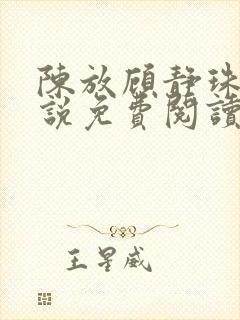 陳放顧靜珠
說免費閱讀
王星威